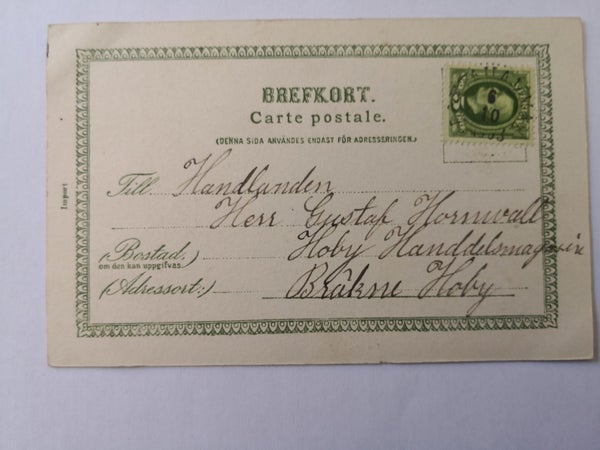 BREFKORT.
Carte postale.
(DENNA SIDA ANVÄNDES ENDAST FÖR ADRESSERINGEN.)
Till Handlanden
Herr Gustaf Hornwall
(Bostad.) Hoby Handdelsmagasin
om den kan uppgifvas.
(Adressort:) Bräkne Hoby
Import
6
10